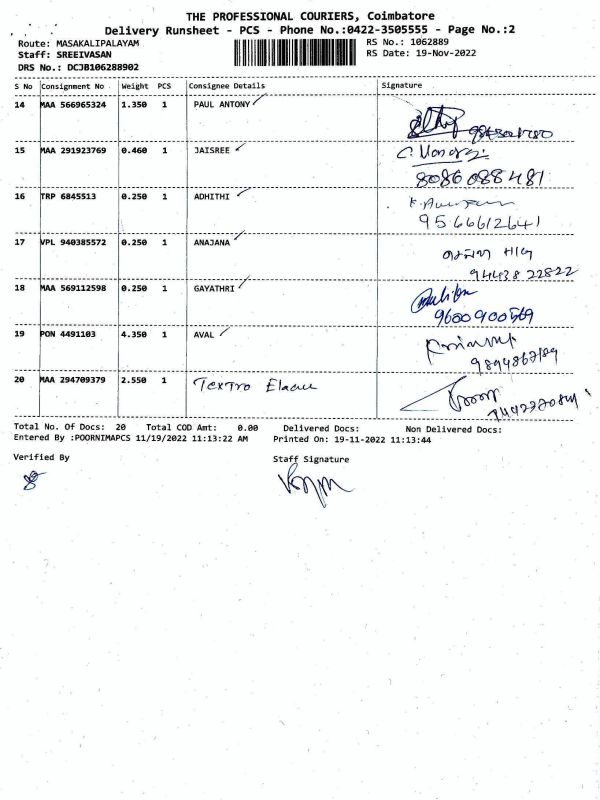 THE PROFESSIONAL COURIERS, Coimbatore
Delivery Runsheet - PCS - Phone No.:0422-3505555 - Page No.:2
Route: MASAKALIPALAYAM RS No.: 1062889
Staff: SREEIVASAN RS Date: 19-Nov-2022
DRS No.: DCJB106288902
S No Consignment No Weight PCS Consignee Details Signature
14 MAA 566965324 1.350 1 PAUL ANTONY
15 MAA 291923769 0.460 1 JAISREE
8086088481
16 TRP 6845513 0.250 1 ADHITHI
9566612641
17 VPL 940385572 0.250 1 ANAJANA
94438 22822
18 MAA 569112598 0.250 1 GAYATHRI
9600900569
19 PON 4491103 4.350 1 AVAL
9894867189
20 MAA 294709379 2.550 1
Total No. Of Docs: 20 Total COD Amt: 0.00 Delivered Docs: Non Delivered Docs:
Entered By :POORNIMAPCS 11/19/2022 11:13:22 AM Printed On: 19-11-2022 11:13:44
Verified By Staff Signature